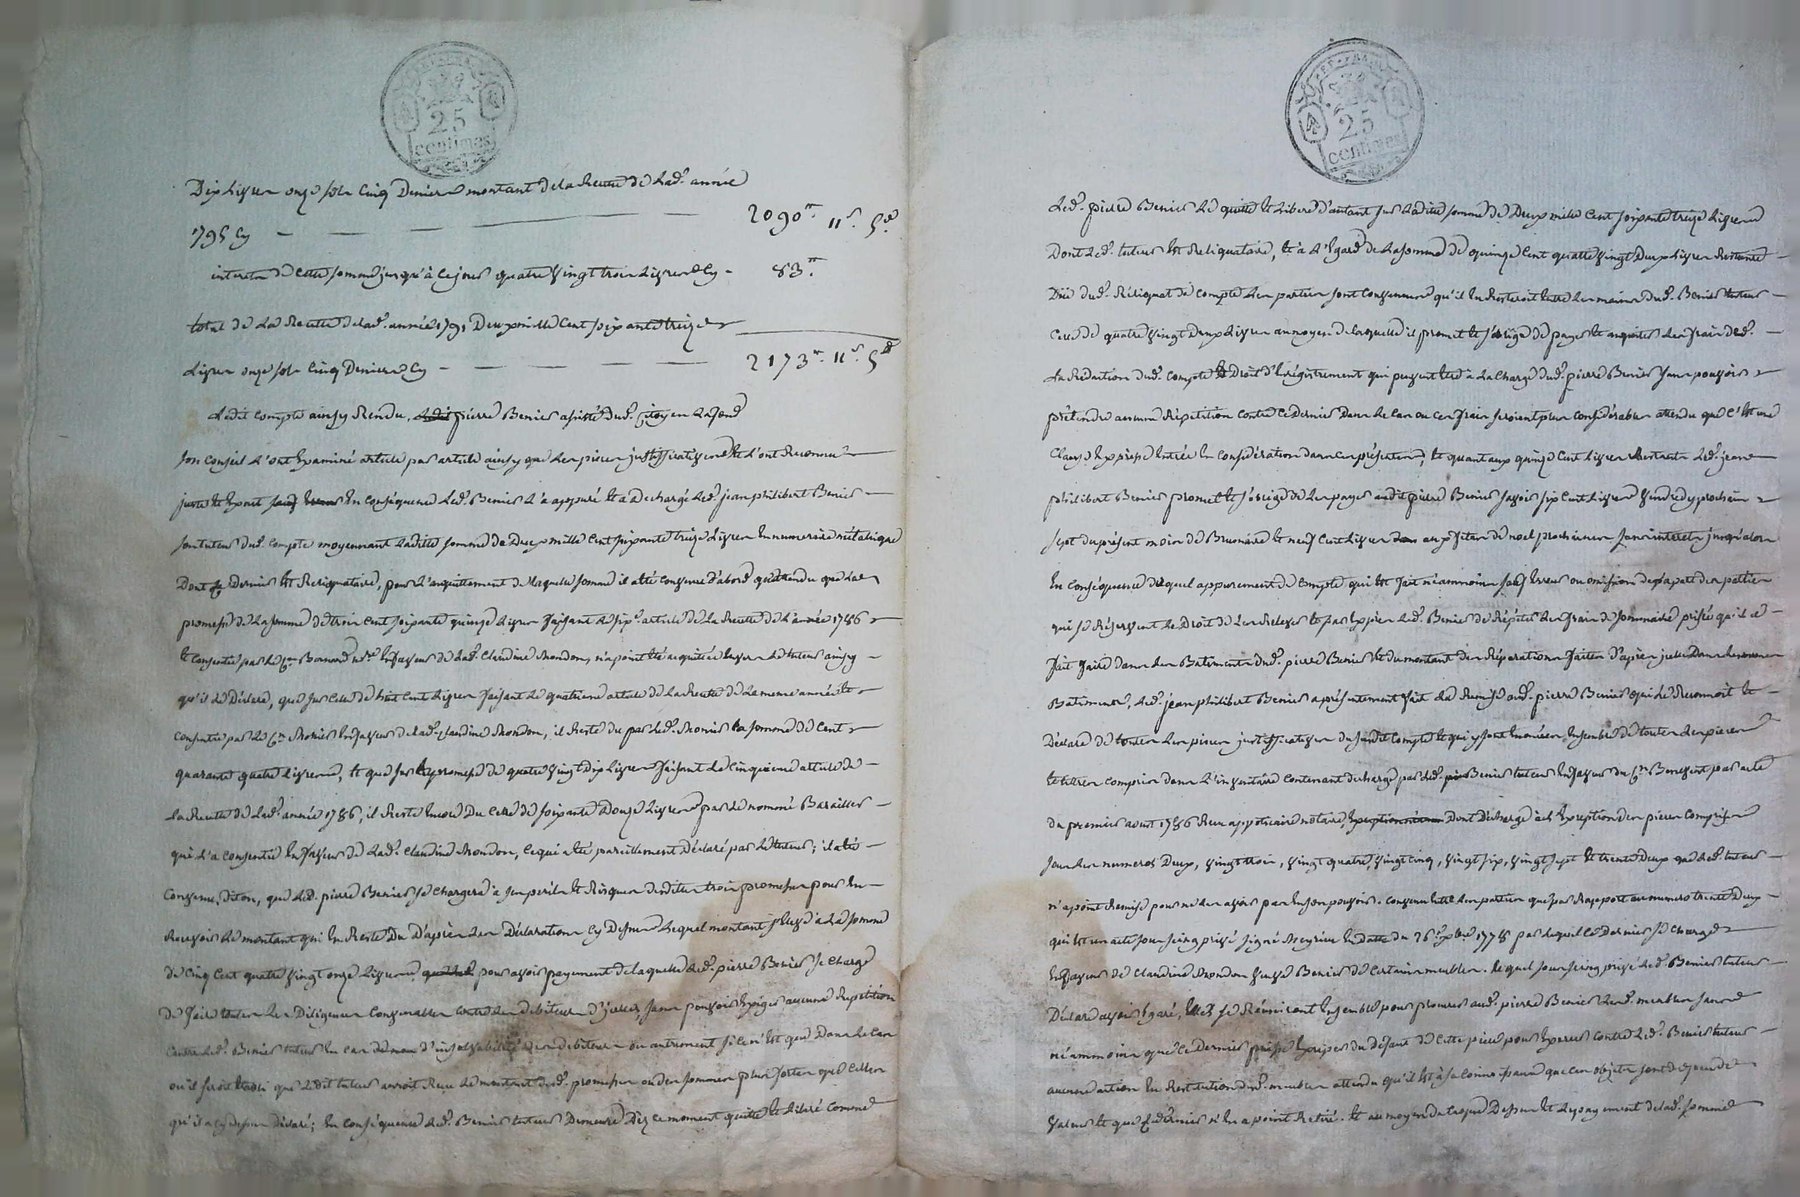 25
centimes
Dix Livres onze sols Cinq Deniers montant de la Recette de Lad. année
1791 Cy 2090ᵗᵗ 11ˢ 5ᵈ
interets de Cette somme jusqu'à Ce jour quatre Vingt trois Livres Cy 83ᵗᵗ
total de La Recette de Lad. année 1791 Deux mille Cent soixante treize
Livres onze sols Cinq Deniers Cy 2173ᵗᵗ 11ˢ 5ᵈ
Ledit Compte ainsy Rendu, pierre Benier assisté dud. Citoyen
son Conseil L'ont Examiné article par article ainsy que Les pieces justifficatives Et L'ont Reconnu
juste Et En Conséquence Led. Benier L'a appuré Et a Dechargé Led. jean philibert Benier
son tuteur dud. Compte moyennant Ladite somme de Deux mille Cent soixante treize Livres En numeraire métalique
Dont Ce Dernier Est Reliquataire, pour L'acquittement de Laquelle somme il a été Convenu d'abord qu'attendu que La
promesse de La somme de trois Cent soixante quinze Livres faisant Le six.ᵉ article de La Recette de L'année 1786
Et Consentie par Le Cⁿ En faveur de Lad. Claudine Mondon, n'a point été acquittée Envers Le tuteur ainsy
qu'il Le Déclare, que sur Celle de huit Cent Livres faisant Le quatrieme article de La Recette de La meme année Et
Consentie par Le Cⁿ En faveur de Lad. Claudine Mondon, il Reste du par Led. La somme de Cent
quarante quatre Livres, Et que sur promesse de quatre Vingt Dix Livres faisant Le Cinquieme article de
La Recette de Lad. année 1786, il Reste Encore Du Celle de soixante Douze Livres par Le nommé Barailler
qui L'a Consentie En faveur de Lad. Claudine Mondon, Ce qui a été pareillement Déclaré par Le tuteur; il a été
Convenu, Dit on, que Led. pierre Benier se Chargera à ses perils Et Risques desdites trois promesses pour En
Recevoir Le montant qui En Reste Du D'après Les Déclarations Cy Dessus Lequel montant s'Eleve à La somme
de Cinq Cent quatre Vingt onze Livres pour avoir payement de Laquelle Led. pierre Benier se Charge
De faire toutes Les Diligences Convenables Contre Les debiteurs D'jcelles, sans pouvoir Exiger aucune Répétition
Contre Led. Benier tuteur En Cas de non d'insolvabilité des debiteurs ou autrement si Ce n'Est que Dans Le Cas
ou il seroit que Ledit tuteur auroit Reçu Le montant desd. promesses ou des sommes plus fortes que Celles
qu'il a Cy dessus déclaré; En Conséquence Led. Benier tuteur Demeure Dès Ce moment quitte Et Libéré Comme
25
centimes
Led. pierre Benier Le quitte Et Libere d'autant sur Ladite somme de Deux mille Cent soixante treize Livres
Dont Led. tuteur Est Reliquataire, Et à L'Egard de La somme de quinze Cent quatre Vingt Deux Livres Restante
Due dud. Réliquat de Compte Les parties sont Convenues qu'il En Resteroit Entre Les mains dud. Benier tuteur
Celle de quatre Vingt deux Livres au moyen de Laquelle il promet Et s'oblige de payer Et acquitter Les frais de
La Rédaction dud. Compte Et Droit d'Enrégistrement qui peuvent Etre à La Charge dud. pierre Benier sans pouvoir
prétendre aucune Répétition Contre Ce Dernier Dans Le Cas ou Ces frais seroient plus Considérables attendu que C'Est une
Clause Expresse Entrée En Considération dans Ces présentes; Et quant aux quinze Cent Livres Restants Led. jean
philibert Benier promet Et s'oblige de Les payer audit pierre Benier savoir six Cent Livres Vendredy prochain
sept du présent mois de Brumaire Et neuf Cent Livres aux fêtes de noel prochaines sans interets jusqu'alors
En Conséquence duquel appurement de Compte qui Est fait néanmoins sauf Erreur ou omission de part des parties
qui se Réservent Le Droit de Les Relever Et par Exprès Led. Benier de Répéter Les frais de sommaire prisée qu'il a
fait faire dans Les Batiments dud. pierre Benier Et du montant des Réparations faites d'après jcelle Dans Les memes
Batiments, Led. jean philibert Benier a présentement fait La Remise aud. pierre Benier qui Le Reconnoit Et
Déclare de toutes Les pieces justifficatives du susdit Compte Et qui y sont Enoncées Ensemble de toutes Les pieces
Et titres Compris dans L'inventaire Contenant décharge par Led. Benier tuteur En faveur du Cⁿ par acte
du premier aout 1786 Reçu notaire, Dont Décharge à L'Exception des pieces Comprises
sous Les numeros Deux, Vingt trois, Vingt quatre, Vingt Cinq, Vingt six, Vingt sept Et trente Deux que Led. tuteur
n'a point Remise pour ne Les avoir pas En son pouvoir. Convenu Entre Les parties que par Rapport au numero trente Deux
qui Est un acte sous seing privé signé En Datte du 26 1778 par Lequel Ce Dernier se Charge
En faveur de Claudine Mondon Veuve Benier de Certains meubles, Lequel sous seing privé Led. Benier tuteur
Déclare avoir Egaré, se Réuniront Ensemble pour procurer aud. pierre Benier Lesd. meubles sans
néanmoins que Ce Dernier puisse Exciper du défaut de Cette piece pour Exercer Contre Led. Benier tuteur
aucune action En Restitution desd. meubles attendu qu'il Est à sa Connoissance que Ces objets sont de peu de
Valeur Et que Ce Dernier n'En a point Retiré. Et au moyen de Ce que Dessus Et Le payement de Lad. somme